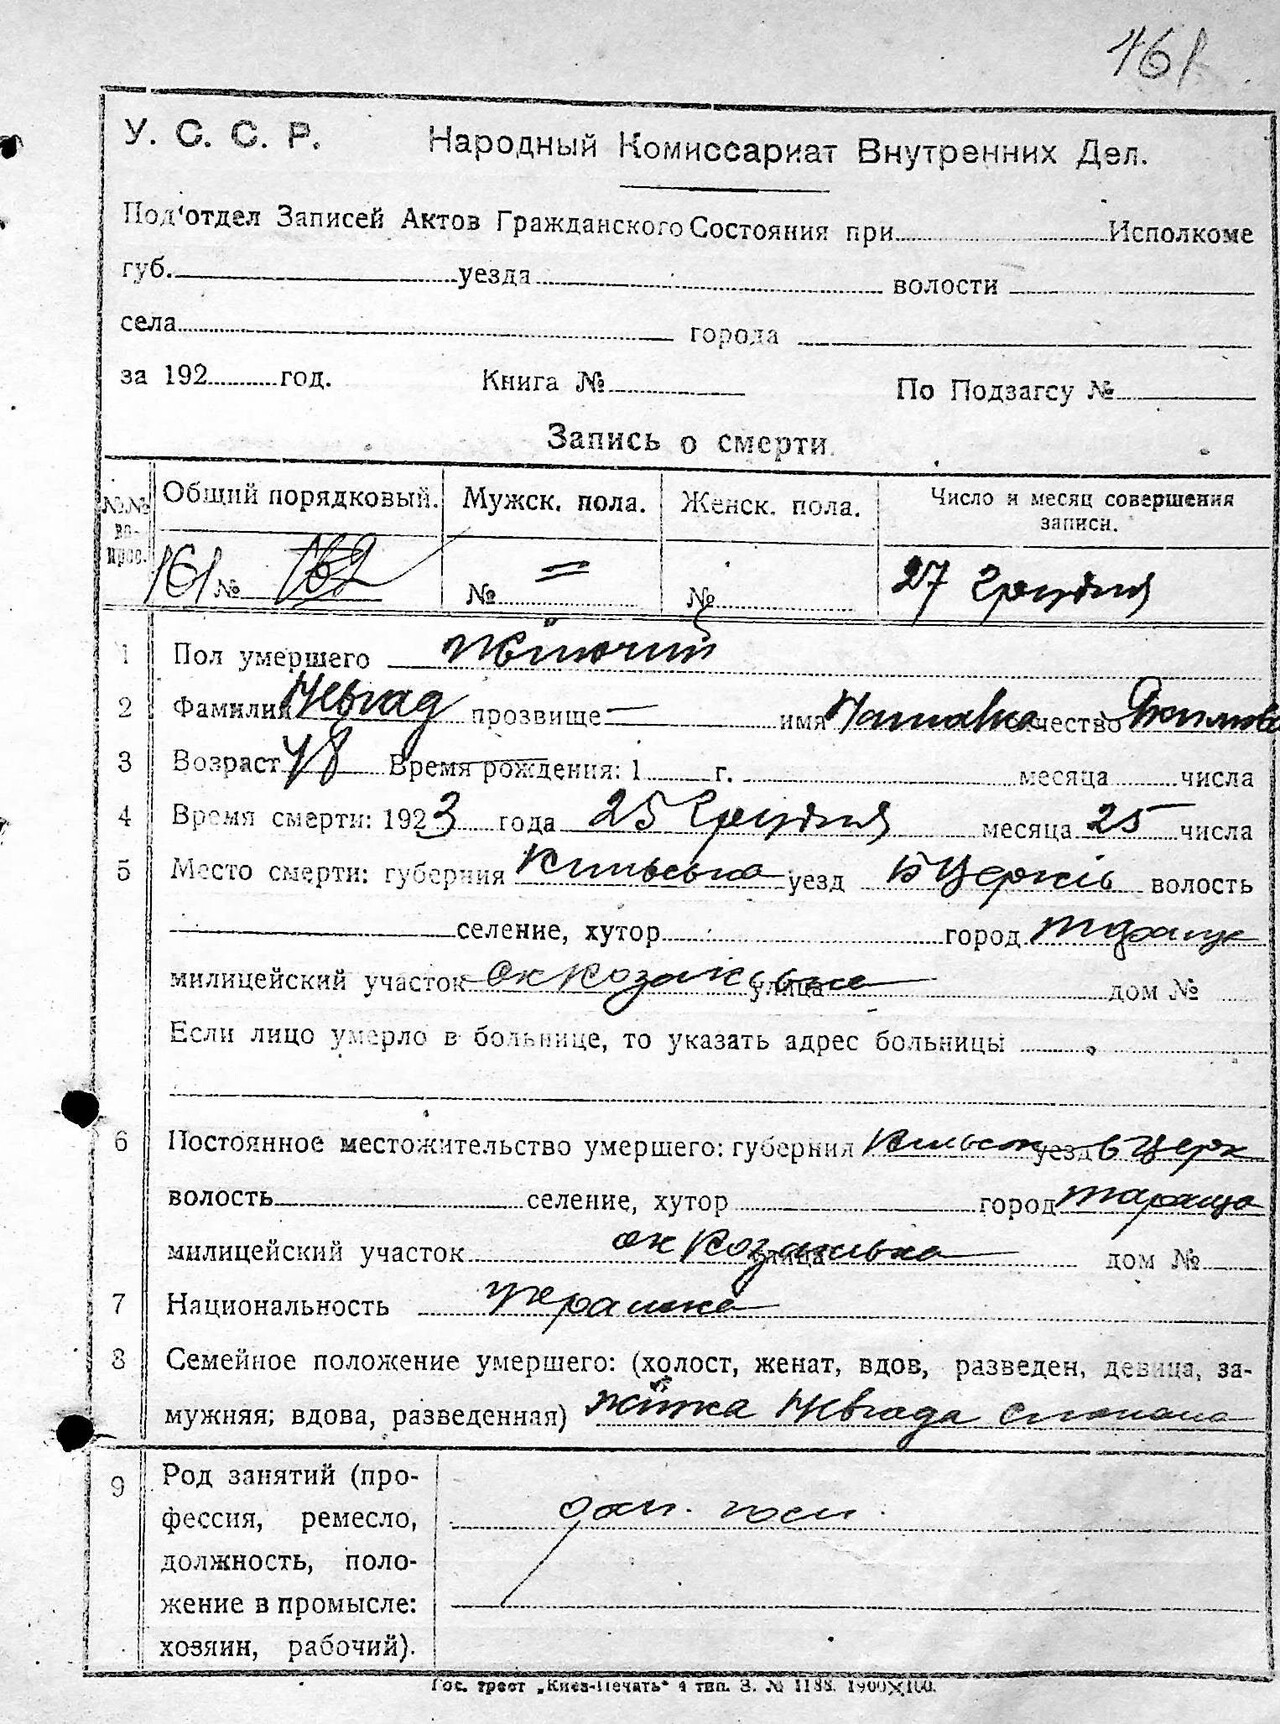 161
У. С. С. Р. Народный Комиссариат Внутренних Дел.
Под'отдел Записей Актов Гражданского Состояния при Исполкоме
губ. уезда волости
села города
за 192 год. Книга № По Подзагсу №
Запись о смерти.
№№ вопрос. Общий порядковый. Мужск. пола. Женск. пола. Число и месяц совершения записи.
161 № 162 № = № 27 Грудня
1 Пол умершего жіночий
2 Фамилия прозвище — имя отчество
3 Возраст 48 Время рождения: 1 г. месяца числа
4 Время смерти: 1923 года 25 Грудня месяца 25 числа
5 Место смерти: губерния Київська уезд Б Церків волость
селение, хутор город Тараща
милицейский участок ок Козаківка улица дом №
Если лицо умерло в больнице, то указать адрес больницы
6 Постоянное местожительство умершего: губерния Київськ уезд Б Церк
волость селение, хутор город Тараща
милицейский участок ок Козаківка улица дом №
7 Национальность Украинка
8 Семейное положение умершего: (холост, женат, вдов, разведен, девица, за-
мужняя; вдова, разведенная) жінка Степана
9 Род занятий (про-
фессия, ремесло,
должность, поло-
жение в промысле:
хозяин, рабочий).
Гос. трест „Киев-Печать“ 4 тип. З. № 1188. 1900×100.